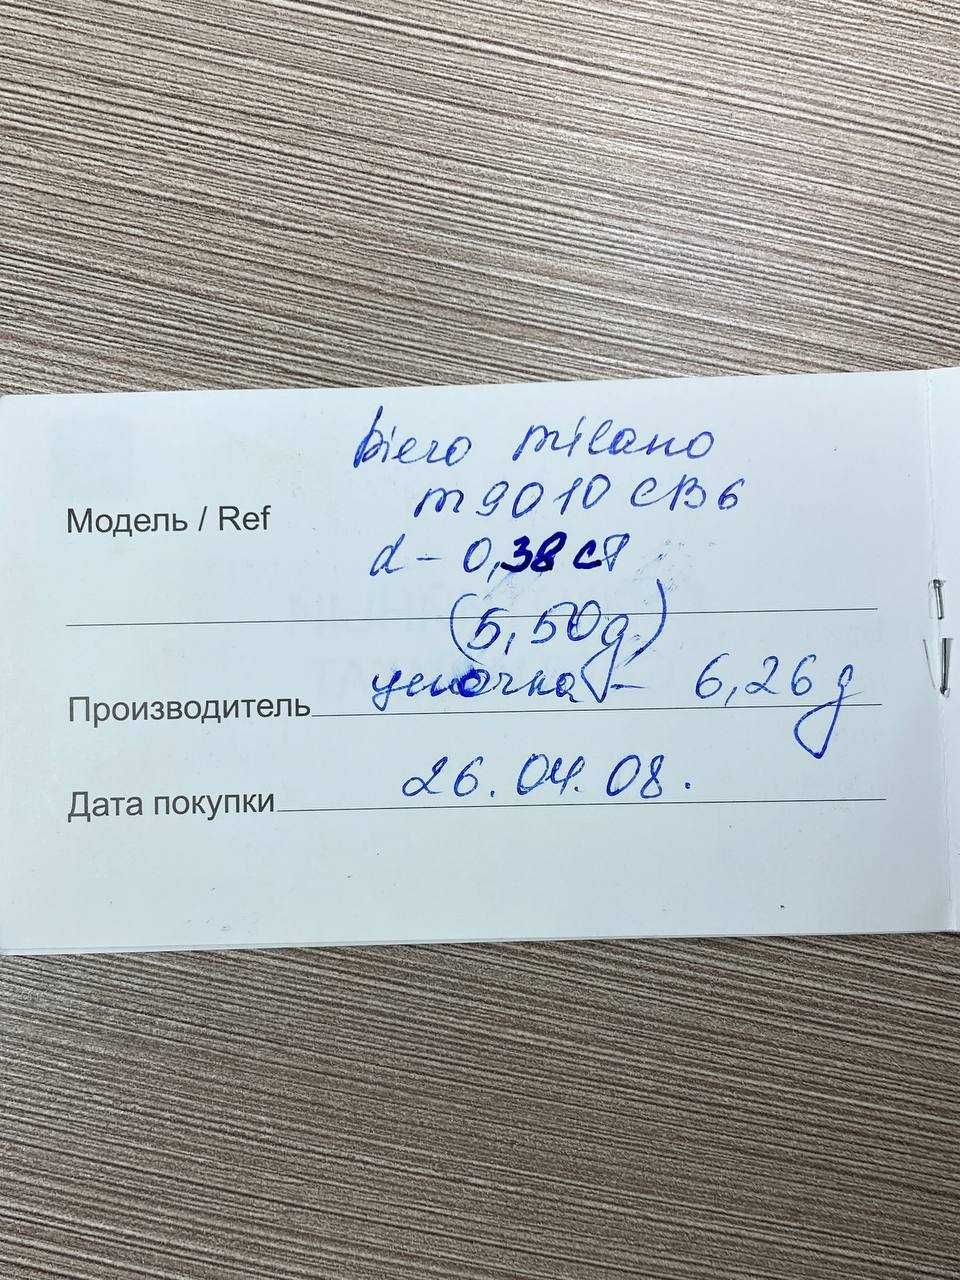 piero milano
Модель / Ref m9010 CB6
d - 0,38 ct
(5,50g)
Производитель цепочка - 6,26 g
Дата покупки 26.04.08.